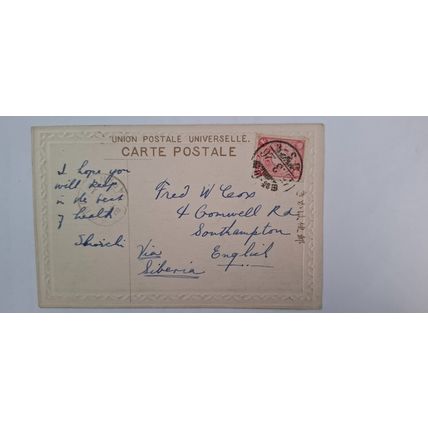 UNION POSTALE UNIVERSELLE.
CARTE POSTALE
I hope you
will keep
in the best
of health
Shoichi
Fred W Cox
4 Cromwell Rd
Southampton
English
Via
Siberia